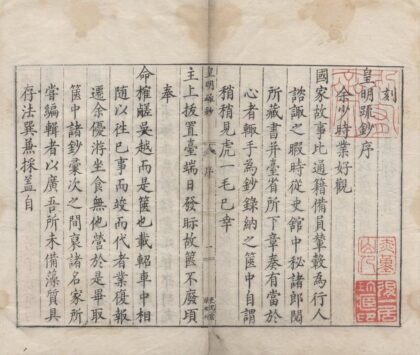 刻
皇明疏鈔序
余少時業好觀
國家故事比通籍備員輦轂為行人
諮諏之暇時從史館中秘諸郎閱
所藏書并臺省所下章奏有當於
心者輒手為鈔錄納之篋中自謂
稍稍見虎一毛已幸
皇明疏鈔 序 一
主上拔置臺端日發眎故篋不廢頃
奉
命榷鹺吳越而是篋也載軺車中相
隨以徃已事而竣而代者業復報
遷余優將坐食無他營於是畢取
篋中諸鈔彙次之間裒諸名家所
嘗編輯者以廣吾所未備藻質具
存法巽兼採蓋自